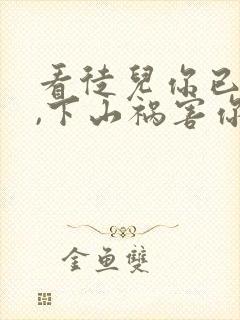 看徒兒你已
,下山祸害你
金鱼雙